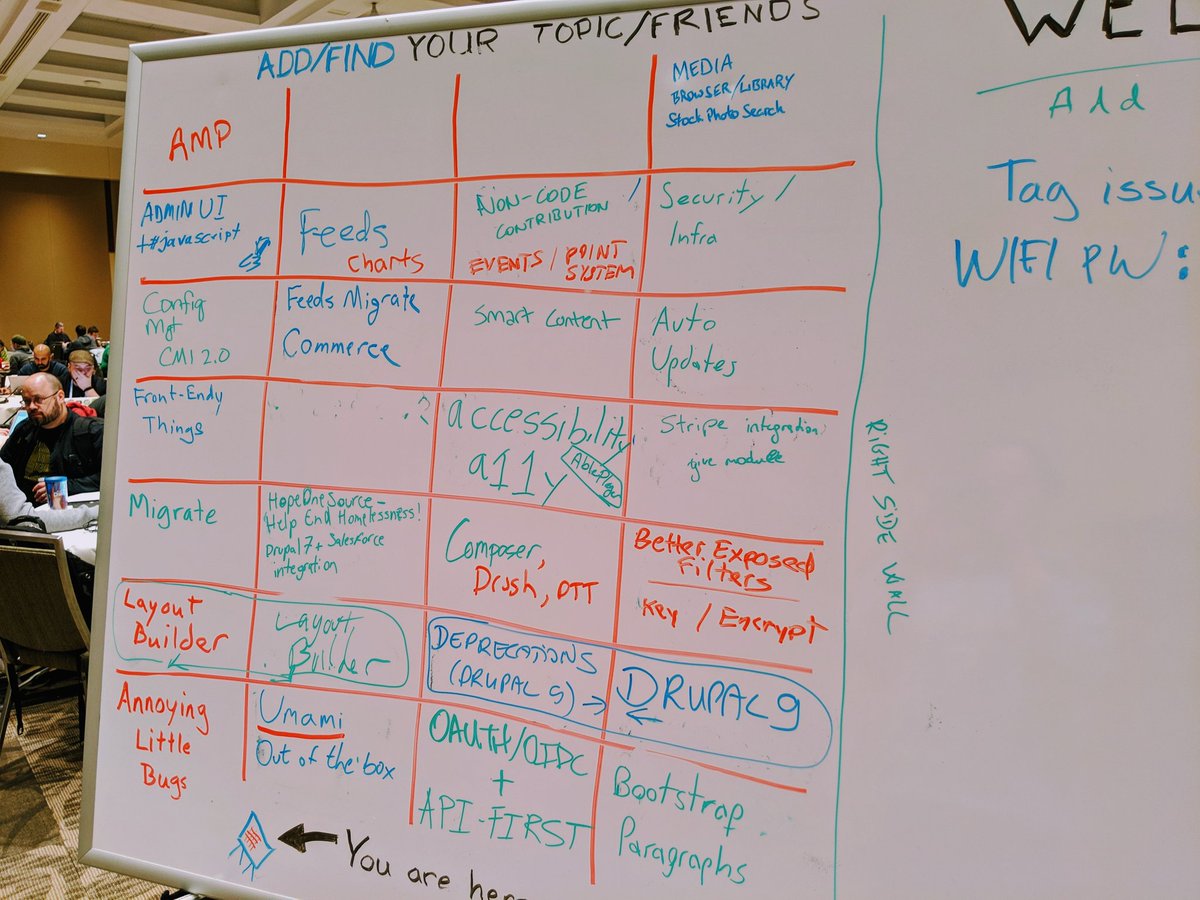 ADD/FIND YOUR TOPIC/FRIENDS
AMP
MEDIA
BROWSER/LIBRARY
Stock Photo Search
ADMIN UI
+#javascript
Feeds
charts
NON-CODE
CONTRIBUTION /
EVENTS / POINT
SYSTEM
Security /
Infra
Config
Mgt
CMI 2.0
Feeds Migrate
Commerce
Smart Content
Auto
Updates
Front-Endy
Things
?
accessibility
a11y
AblePlayer
Stripe integration
give module
Migrate
HopeOneSource -
Help End Homelessness!
Drupal 7 + Salesforce
integration
Composer,
Drush, DTT
Better Exposed
Filters
Key / Encrypt
Layout
Builder
Layout
Builder
DEPRECATIONS
(DRUPAL 9) →
DRUPAL 9
←
Annoying
Little
Bugs
Umami
Out of the box
OAUTH/OIDC
+
API-FIRST
Bootstrap
Paragraphs
You are here
RIGHT SIDE WALL
WEL
Add
Tag issu
WIFI PW: